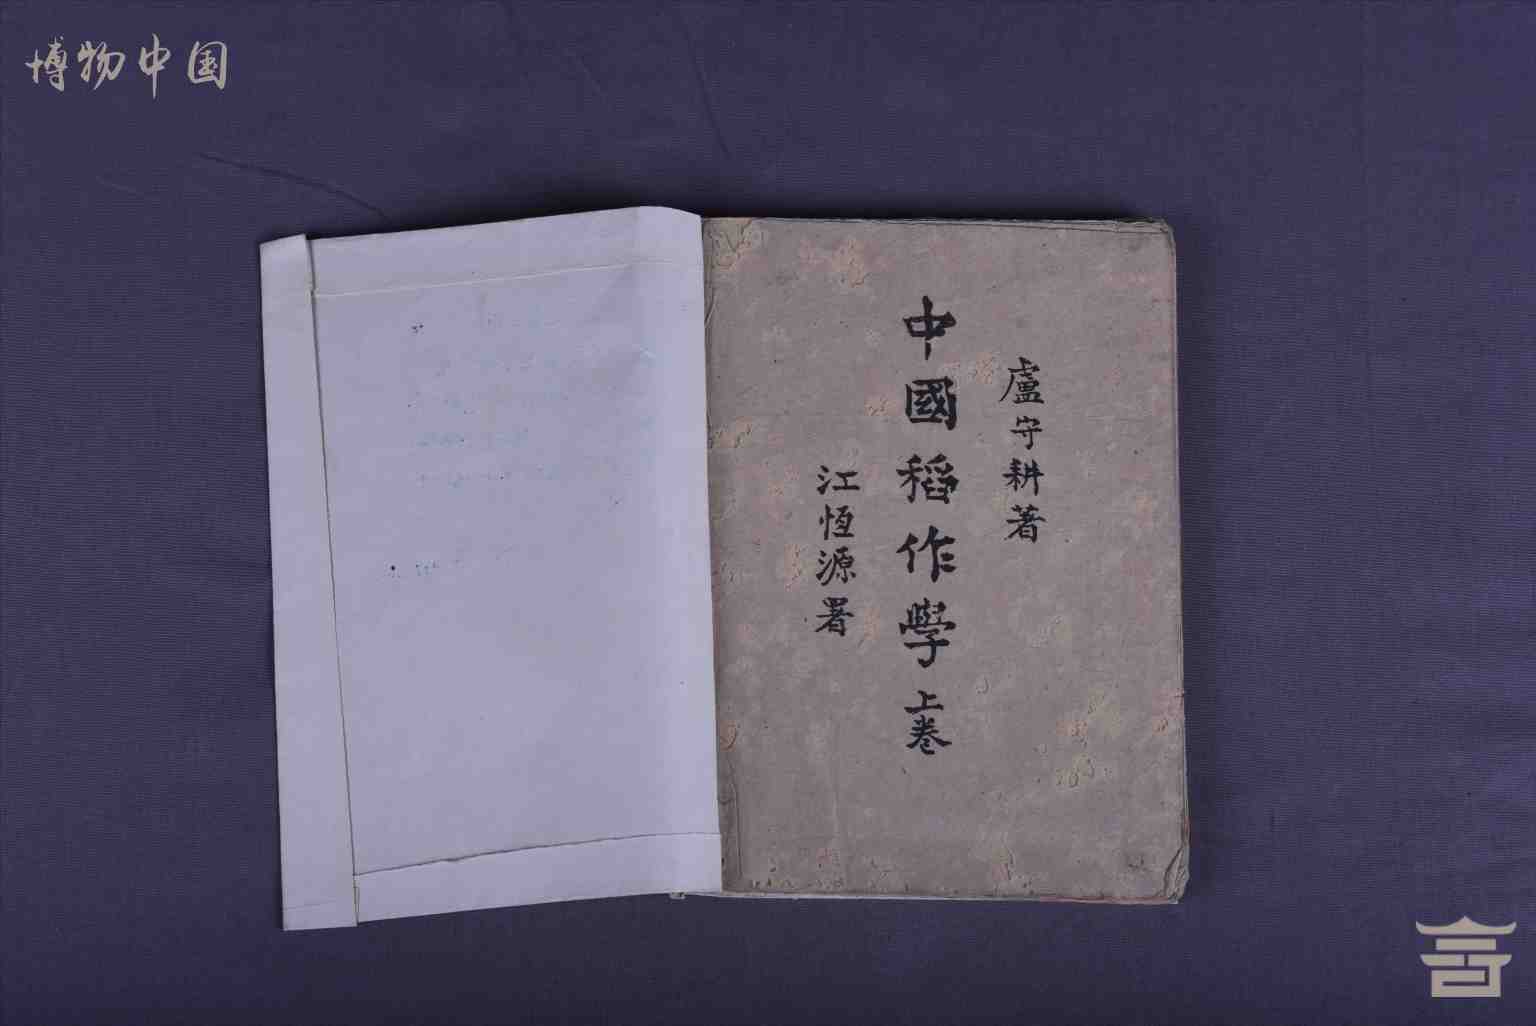 博物中国
盧守耕著
中國稻作學 上卷
江恆源署